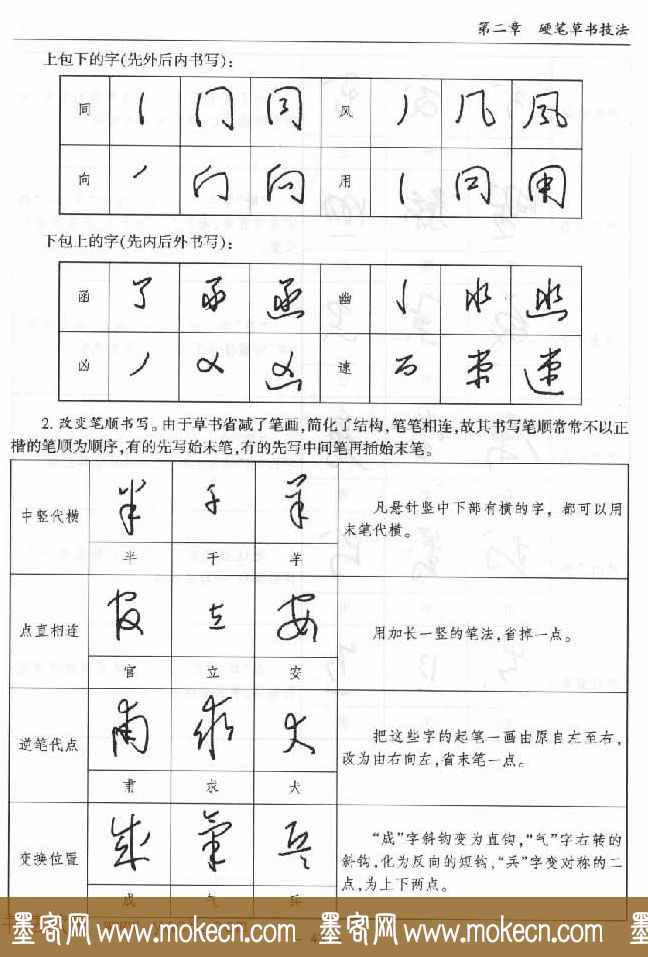 第二章 硬笔草书技法
上包下的字(先外后内书写):
同 风
向 用
下包上的字(先内后外书写):
函 幽
凶 速
2. 改变笔顺书写。由于草书省减了笔画,简化了结构,笔笔相连,故其书写笔顺常常不以正
楷的笔顺为顺序,有的先写始末笔,有的先写中间笔再插始末笔。
中竖代横
半 干 羊
凡悬针竖中下部有横的字,都可以用
末笔代横。
点直相连
官 立 安
用加长一竖的笔法,省掉一点。
逆笔代点
甫 求 犬
把这些字的起笔一画由原自左至右,
改为由右向左,省末笔一点。
变换位置
成 气 兵
“成”字斜钩变为直钩,“气”字右转的
斜钩,化为反向的短钩,“兵”字变对称的二
点,为上下两点。
墨客网 www.mokecn.com 墨客网 www.mokecn.com